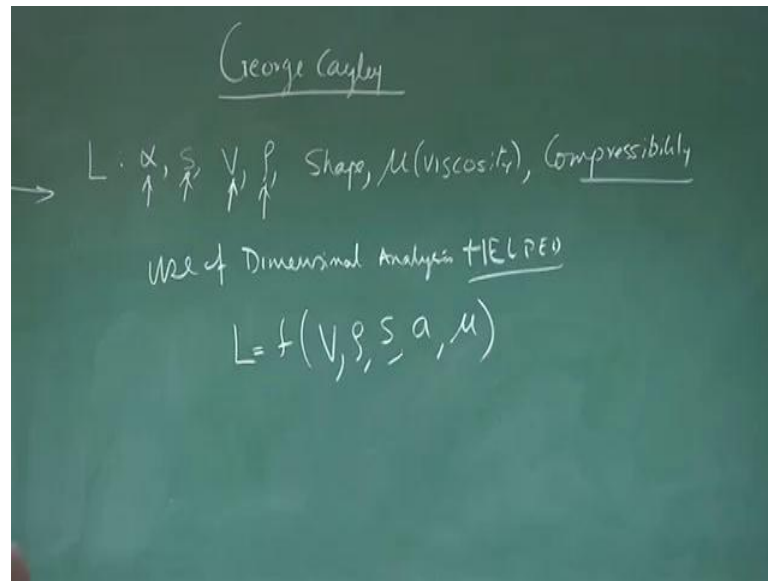 George Cayley
L : α, S, V, ρ, Shape, μ(viscosity), Compressibility
Use of Dimensional Analysis HELPED
L = f(V, ρ, S, a, μ)